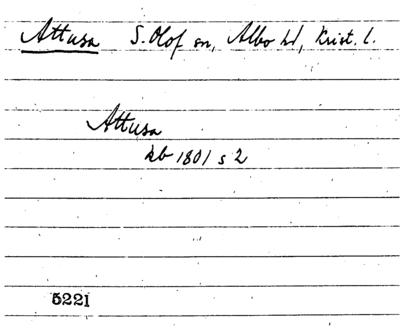 Attusa S. Olof sn, Albo hd, Krist. l.
Attusa
kb 1801 s 2
5221